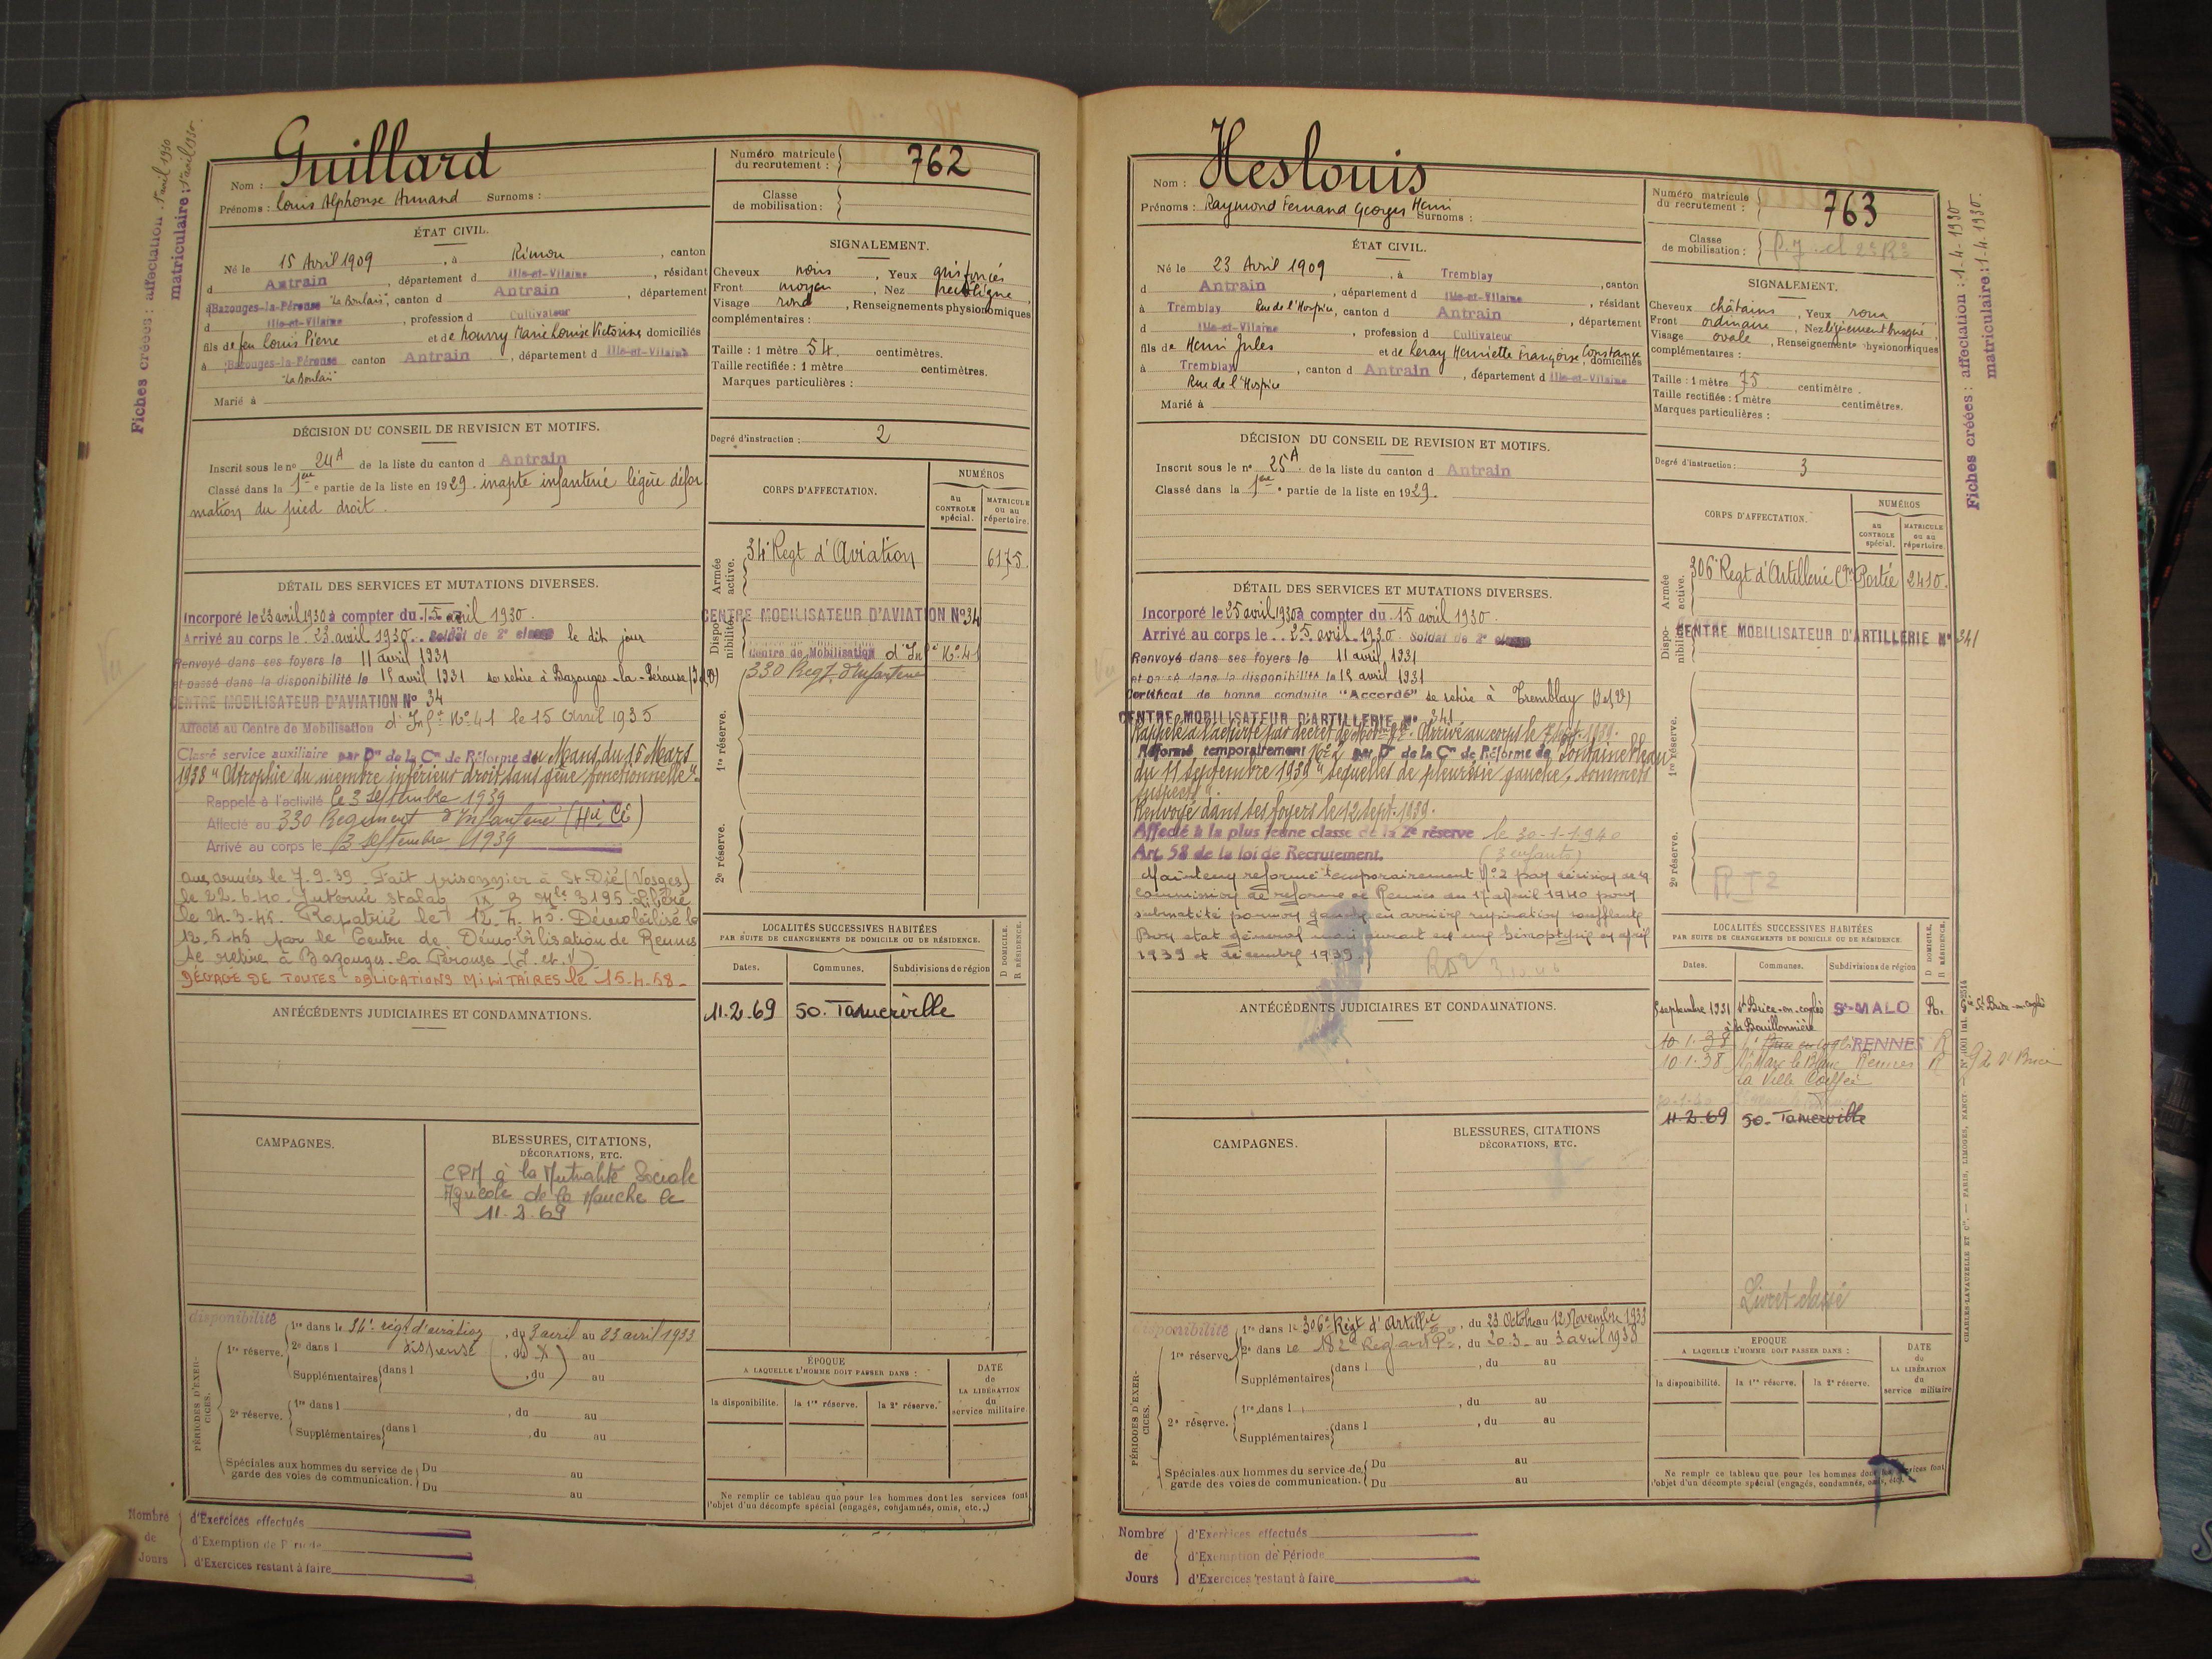 Fiches créées : affectation : 1er avril 1930
matriculaire : 1er avril 1930.
Guillard
Nom :
Prénoms : Louis Alphonse Armand Surnoms :
Numéro matricule du recrutement : 762
Classe de mobilisation :
ÉTAT CIVIL.
Né le 15 Avril 1909, à Rimou, canton
d Antrain, département d Ille-et-Vilaine, résidant
à Bazouges-la-Pérouse "La Boulais", canton d Antrain, département
d Ille-et-Vilaine, profession d Cultivateur
fils de feu Louis Pierre et de Nourry Marie Louise Victorine domiciliés
à Bazouges-la-Pérouse canton Antrain, département d Ille-et-Vilaine
"La Boulais"
Marié à
SIGNALEMENT.
Cheveux noirs, Yeux gris foncés
Front moyen, Nez rectiligne,
Visage rond, Renseignements physionomiques
complémentaires :
Taille : 1 mètre 54 centimètres.
Taille rectifiée : 1 mètre centimètres.
Marques particulières :
Degré d'instruction : 2
DÉCISION DU CONSEIL DE REVISION ET MOTIFS.
Inscrit sous le no 24 A de la liste du canton d Antrain
Classé dans la 1ère partie de la liste en 1929. inapte infanterie légère défor
mation du pied droit.
CORPS D'AFFECTATION.
NUMÉROS
au CONTROLE spécial.
MATRICULE ou au répertoire.
Armée active.
34e Regt d'Aviation 6175.
Disponibilité.
CENTRE MOBILISATEUR D'AVIATION No 34
Centre de Mobilisation d'Infie No 41
330 Regt d'Infanterie
1re réserve.
2e réserve.
DÉTAIL DES SERVICES ET MUTATIONS DIVERSES.
Incorporé le 23 avril 1930 à compter du 15 avril 1930.
Arrivé au corps le 23 avril 1930. Soldat de 2e classe le dit jour
Renvoyé dans ses foyers le 11 avril 1931
et passé dans la disponibilité le 15 avril 1931 se retire à Bazouges-la-Pérouse (I et V)
CENTRE MOBILISATEUR D'AVIATION No 34
Affecté au Centre de Mobilisation d'Infie No 41 le 15 Avril 1935
Classé service auxiliaire par Don de la Con de Réforme du Mans du 15 Mars
1938 "Atrophie du membre inférieur droit sans gêne fonctionnelle".
Rappelé à l'activité le 3 septembre 1939
Affecté au 330 Regiment d'Infanterie
Arrivé au corps le 3 septembre 1939
aux armées le 7.9.39. Fait prisonnier à St Dié (Vosges)
le 22.6.40. Interné stalag IX B Mle 3195. Libéré
le 24.3.45. Rapatrié le 12.4.45. Démobilisé le
12.5.45 par le Centre de Démobilisation de Rennes
Se retire à Bazouges-La Pérouse (I. et. V)
DÉGAGÉ DE TOUTES OBLIGATIONS MILITAIRES le 15-4-58-
LOCALITÉS SUCCESSIVES HABITÉES
PAR SUITE DE CHANGEMENTS DE DOMICILE OU DE RÉSIDENCE.
Dates. Communes. Subdivisions de région D DOMICILE. R RÉSIDENCE.
11.2.69 50. Tamerville
ANTÉCÉDENTS JUDICIAIRES ET CONDAMNATIONS.
CAMPAGNES.
BLESSURES, CITATIONS,
DÉCORATIONS, ETC.
CPM à la Mutualité Sociale
Agricole de la Manche le
11.2.69
disponibilité
PÉRIODES D'EXERCICES.
1re réserve. 1re dans le 34e régt d'aviation, du 3 avril au 23 avril 1933
2e dans l dispensé, du X au
Supplémentaires dans l, du au
2e réserve. 1re dans l, du au
Supplémentaires dans l, du au
Spéciales aux hommes du service de Du au
garde des voies de communication. Du au
ÉPOQUE
A LAQUELLE L'HOMME DOIT PASSER DANS :
la disponibilité. la 1re réserve. la 2e réserve.
DATE de LA LIBÉRATION du service militaire
Ne remplir ce tableau que pour les hommes dont les services font
l'objet d'un décompte spécial (engagés, condamnés, omis, etc..)
Nombre de Jours
d'Exercices effectués
d'Exemption de Période
d'Exercices restant à faire
Heslouis
Nom :
Prénoms : Raymond Fernand Georges Henri Surnoms :
Numéro matricule du recrutement : 763
Classe de mobilisation :
Fiches créées : affectation : 1-4-1930
matriculaire : 1-4-1930.
ÉTAT CIVIL.
Né le 23 Avril 1909, à Tremblay
d Antrain, département d Ille-et-Vilaine, canton
à Tremblay Rue de l'Hospice, canton d Antrain, résidant
d Ille-et-Vilaine, profession d Cultivateur, département
fils de Henri Jules et de Leray Henriette Françoise Constance
à Tremblay, canton d Antrain, département d Ille-et-Vilaine domiciliés
Rue de l'Hospice
Marié à
SIGNALEMENT.
Cheveux châtains, Yeux roux
Front ordinaire, Nez légèrement busqué,
Visage ovale, Renseignements physionomiques
complémentaires :
Taille : 1 mètre 75 centimètre.
Taille rectifiée : 1 mètre centimètres.
Marques particulières :
Degré d'instruction : 3
DÉCISION DU CONSEIL DE REVISION ET MOTIFS.
Inscrit sous le no 25 A. de la liste du canton d Antrain
Classé dans la 1ère partie de la liste en 1929.
CORPS D'AFFECTATION.
NUMÉROS
au CONTROLE spécial.
MATRICULE ou au répertoire.
Armée active.
306e Regt d'Artillerie Portée 2410.
Disponibilité.
CENTRE MOBILISATEUR D'ARTILLERIE No 341
1re réserve.
2e réserve.
DÉTAIL DES SERVICES ET MUTATIONS DIVERSES.
Incorporé le 25 avril 1930 à compter du 15 avril 1930.
Arrivé au corps le 25 avril 1930 Soldat de 2e classe
Renvoyé dans ses foyers le 11 avril 1931
et passé dans la disponibilité le 15 avril 1931
Certificat de bonne conduite "Accordé" se retire à Tremblay (I et V)
CENTRE MOBILISATEUR D'ARTILLERIE No 341
Rappelé à l'activité par décret de Mobon Gle. Arrivé au corps le 7 Sept. 1939.
Réformé temporairement No 2 par Don de la Con de Réforme de Fontainebleau
du 11 septembre 1939 "séquelles de pleurésie gauche, sommets
suspects".
Renvoyé dans ses foyers le 12 Sept. 1939.
Affecté à la plus jeune classe de la 2e réserve le 30-1-1940
Art. 58 de la loi de Recrutement. (3 enfants)
Maintenu réformé temporairement No 2 par décision de la
Commission de réforme de Rennes du 17 avril 1940 pour
submatité poumon gauche en arrière respiration soufflante
Bon état général mais aurait eu une hémoptysie en avril
1939 et décembre 1939.
LOCALITÉS SUCCESSIVES HABITÉES
PAR SUITE DE CHANGEMENTS DE DOMICILE OU DE RÉSIDENCE.
Dates. Communes. Subdivisions de région D DOMICILE. R RÉSIDENCE.
septembre 1931 St Brice-en-coglès St-MALO R.
à la Bouillonnière
10.1.38 RENNES R
10.1.38 St Marc le Blanc Rennes R
La Ville
11.2.69 50. Tamerville
Livret classé
ANTÉCÉDENTS JUDICIAIRES ET CONDAMNATIONS.
CAMPAGNES.
BLESSURES, CITATIONS
DÉCORATIONS, ETC.
disponibilité
PÉRIODES D'EXERCICES.
1re réserve. 1re dans le 306e Régt d'Artillie, du 23 Octobre au 12 Novembre 1933
2e dans le 182e Reg art, du 20.3. au 3 avril 1938
Supplémentaires dans l, du au
2e réserve. 1re dans l, du au
Supplémentaires dans l, du au
Spéciales aux hommes du service de Du au
garde des voies de communication. Du au
EPOQUE
A LAQUELLE L'HOMME DOIT PASSER DANS :
la disponibilité. la 1re réserve. la 2e réserve.
DATE du LA LIBÉRATION du service militaire
Ne remplir ce tableau que pour les hommes dont les services font
l'objet d'un décompte spécial (engagés, condamnés, omis, etc.)
CHARLES-LAVAUZELLE ET Cie. — PARIS, LIMOGES, NANCY.
Nombre de Jours
d'Exercices effectués
d'Exemption de Période
d'Exercices restant à faire